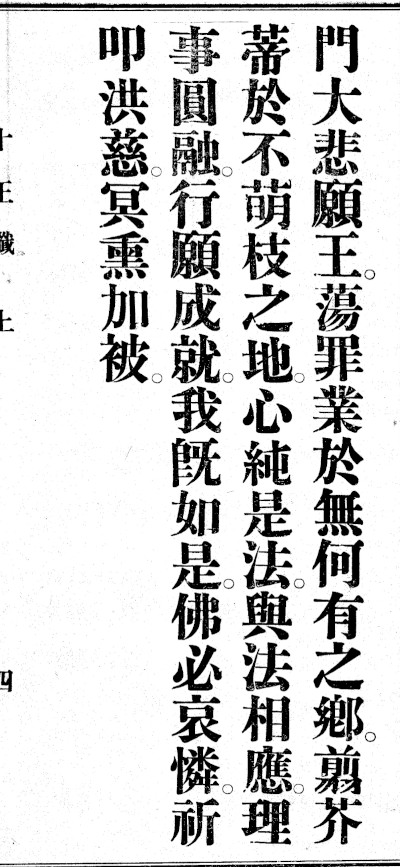 門大悲願王。蕩罪業於無何有之鄉。翦芥
蒂於不萌枝之地。心純是法。與法相應。理
事圓融。行願成就。我旣如是。佛必哀憐。祈
叩洪慈。冥熏加被。
十王懺 上 四